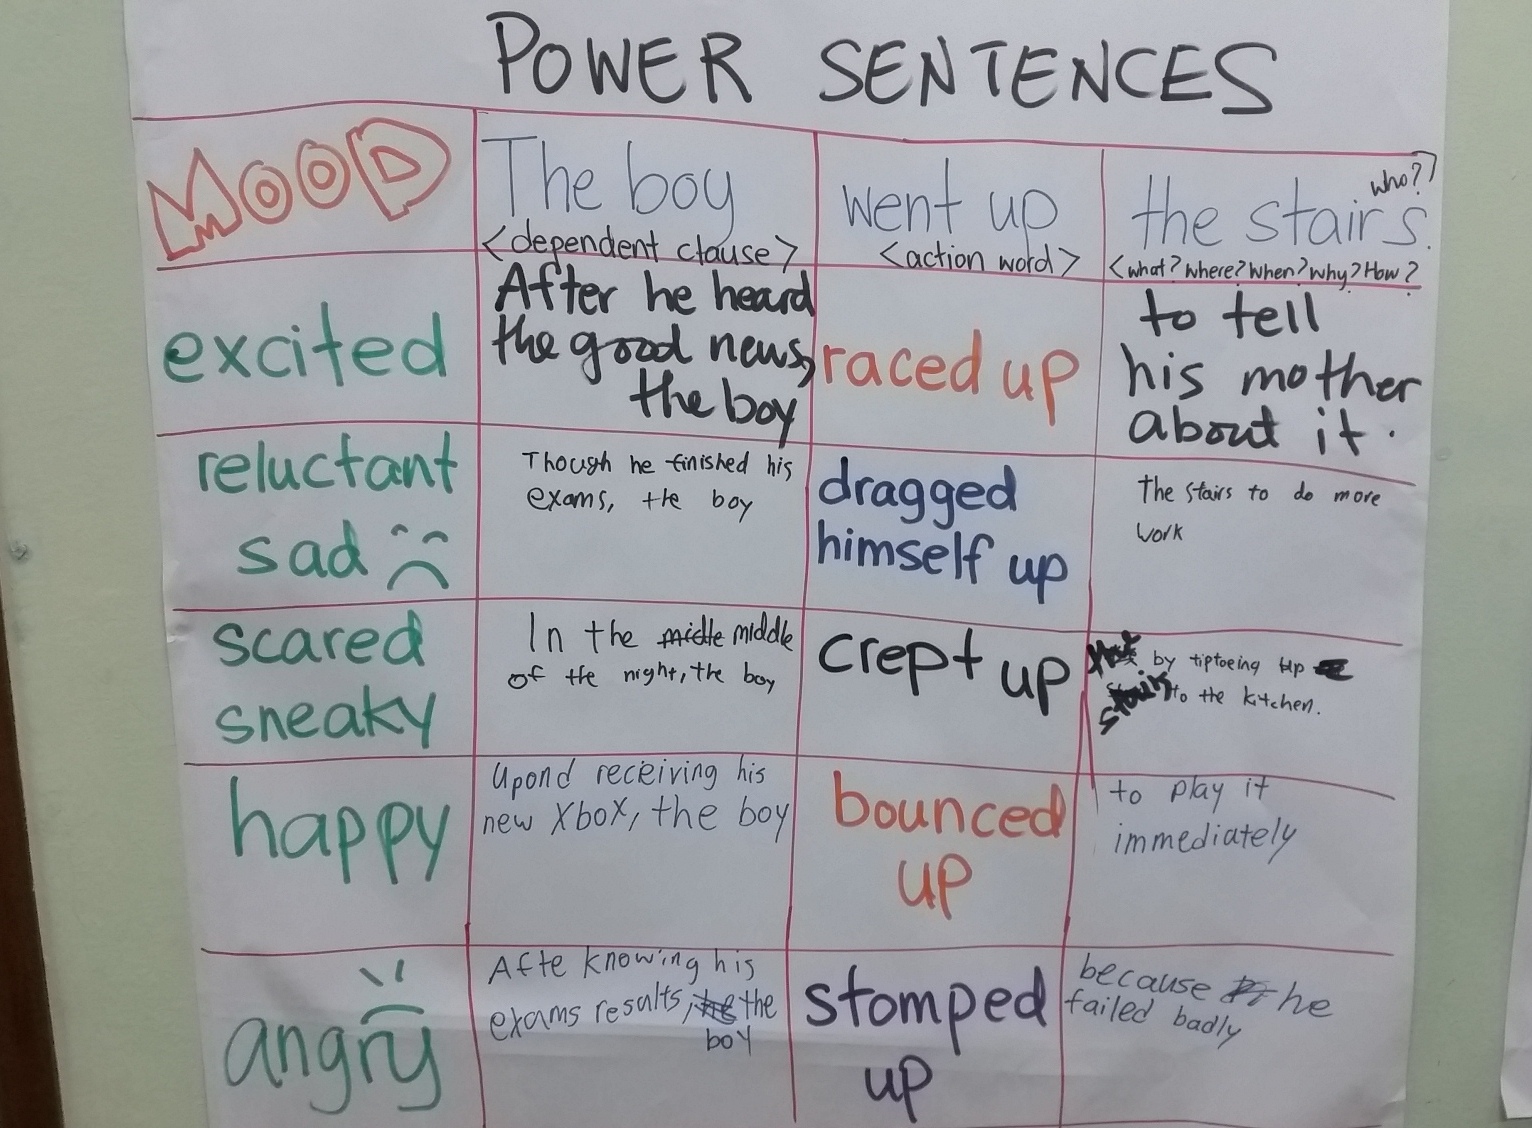 POWER SENTENCES
MOOD
The boy
<dependent clause>
went up
<action word>
the stairs.
who?
<what? where? when? why? How?
excited
After he heard
the good news,
the boy
raced up
to tell
his mother
about it.
reluctant
sad
Though he finished his
exams, the boy
dragged
himself up
The stairs to do more
work
scared
sneaky
In the midle middle
of the night, the boy
crept up
by tiptoeing up
to the kitchen.
happy
Upond receiving his
new Xbox, the boy
bounced
up
to play it
immediately
angry
Afte knowing his
exams results, he the
boy
stomped
up
because he
failed badly